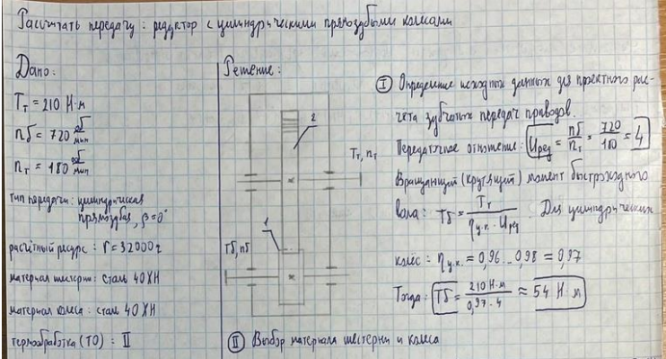 Рассчитать передачу: редуктор с цилиндрическими прямозубыми колесами
Дано:
Tт = 210 Н·м
nб = 720 об/мин
nт = 180 об/мин
тип передачи: цилиндрическая
прямозубая, β=0°
расчётный ресурс: r = 32000 ч
материал шестерни: сталь 40ХН
материал колеса: сталь 40ХН
термообработка (ТО): II
Решение:
2
Tт, nт
1
Tб, nб
I Определение исходных данных для проектного рас-
чета зубчатых передач приводов.
Передаточное отношение: Uред = nб/nт = 720/180 = 4
Вращающий (крутящий) момент быстроходного
вала: Tб = Tт/(ηц.к. · Uред). Для цилиндрических
колес: ηц.к. = 0,96...0,98 = 0,97
Тогда: Tб = 210 Н·м/(0,97·4) ≈ 54 Н·м
II Выбор материала шестерни и колеса